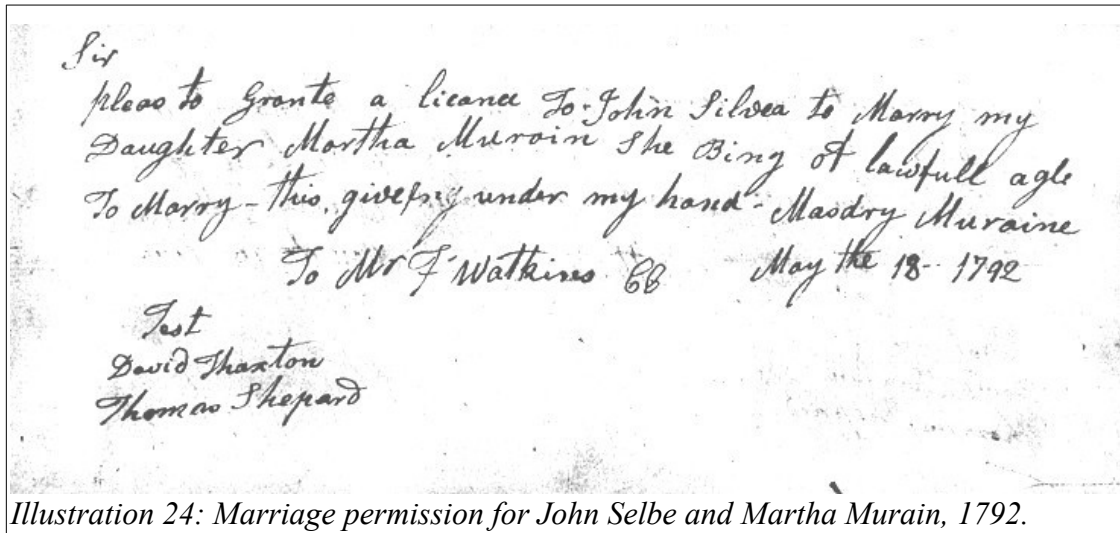 Sir
pleas to Grante a licance To John Silvea to Marry my
Daughter Martha Murain She Bing of lawfull agle
To Marry - this, giveing under my hand - Masdry Muraine
To Mr F Watkins May the 18 - 1792
Test
David Thaxton
Thomas Shepard
Illustration 24: Marriage permission for John Selbe and Martha Murain, 1792.